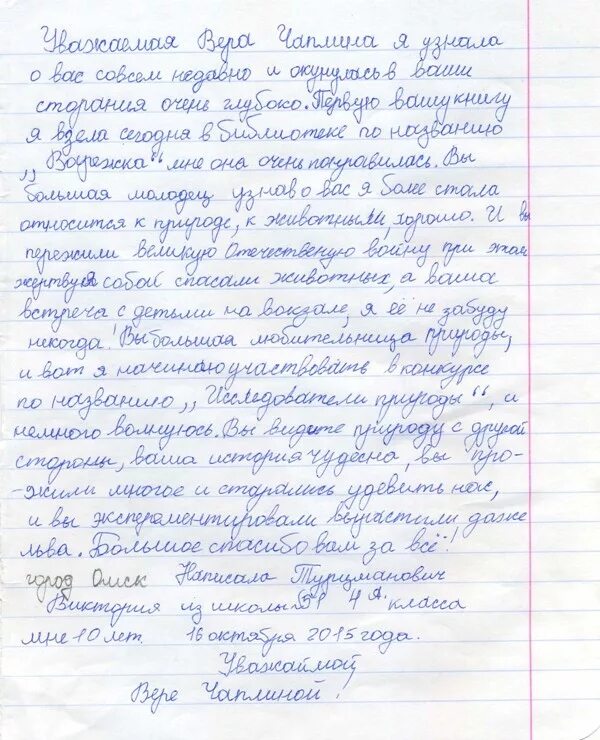 Уважаемая Вера Чаплина я узнала
о вас совсем недавно и окунулась в ваши
старания очень глубоко. Первую вашу книгу
я взела сегодня в библиотеке по названию
„Варежка“ мне она очень понравилась. Вы
большая молодец узнав о вас я более стала
относится к природе, к животным, хорошо. И вы
пережили великую Отечественую войну при этом
жертвуя собой спасали животных, а ваша
встреча с детьми на вокзале, я её не забуду
некогда! Вы большая любительница природы,
и вот я начинаю участвовать в конкурсе
по названию „Исследователи природы“, и
немного волнуюсь. Вы видите природу с другой
стороны, ваша история чудесна, вы про-
-жили многое и старались удевить нас,
и вы эксперементировали вырастили даже
льва. Большое спасибо вам за всё!
город Омск Написала Турцманович
Виктория из школы 4 А класса
мне 10 лет. 16 октября 2015 года.
Уважаймой
Вере Чаплиной!